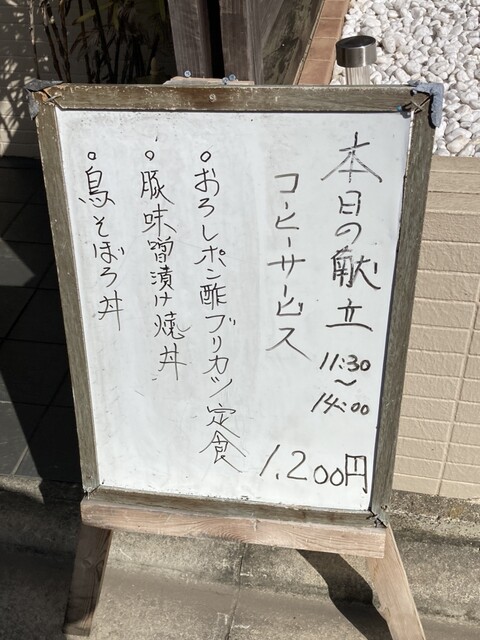 本日の献立
11:30
～
14:00
コーヒーサービス
。おろしポン酢ブリカツ定食
。豚味噌漬け焼丼
。鳥そぼろ丼
1,200円